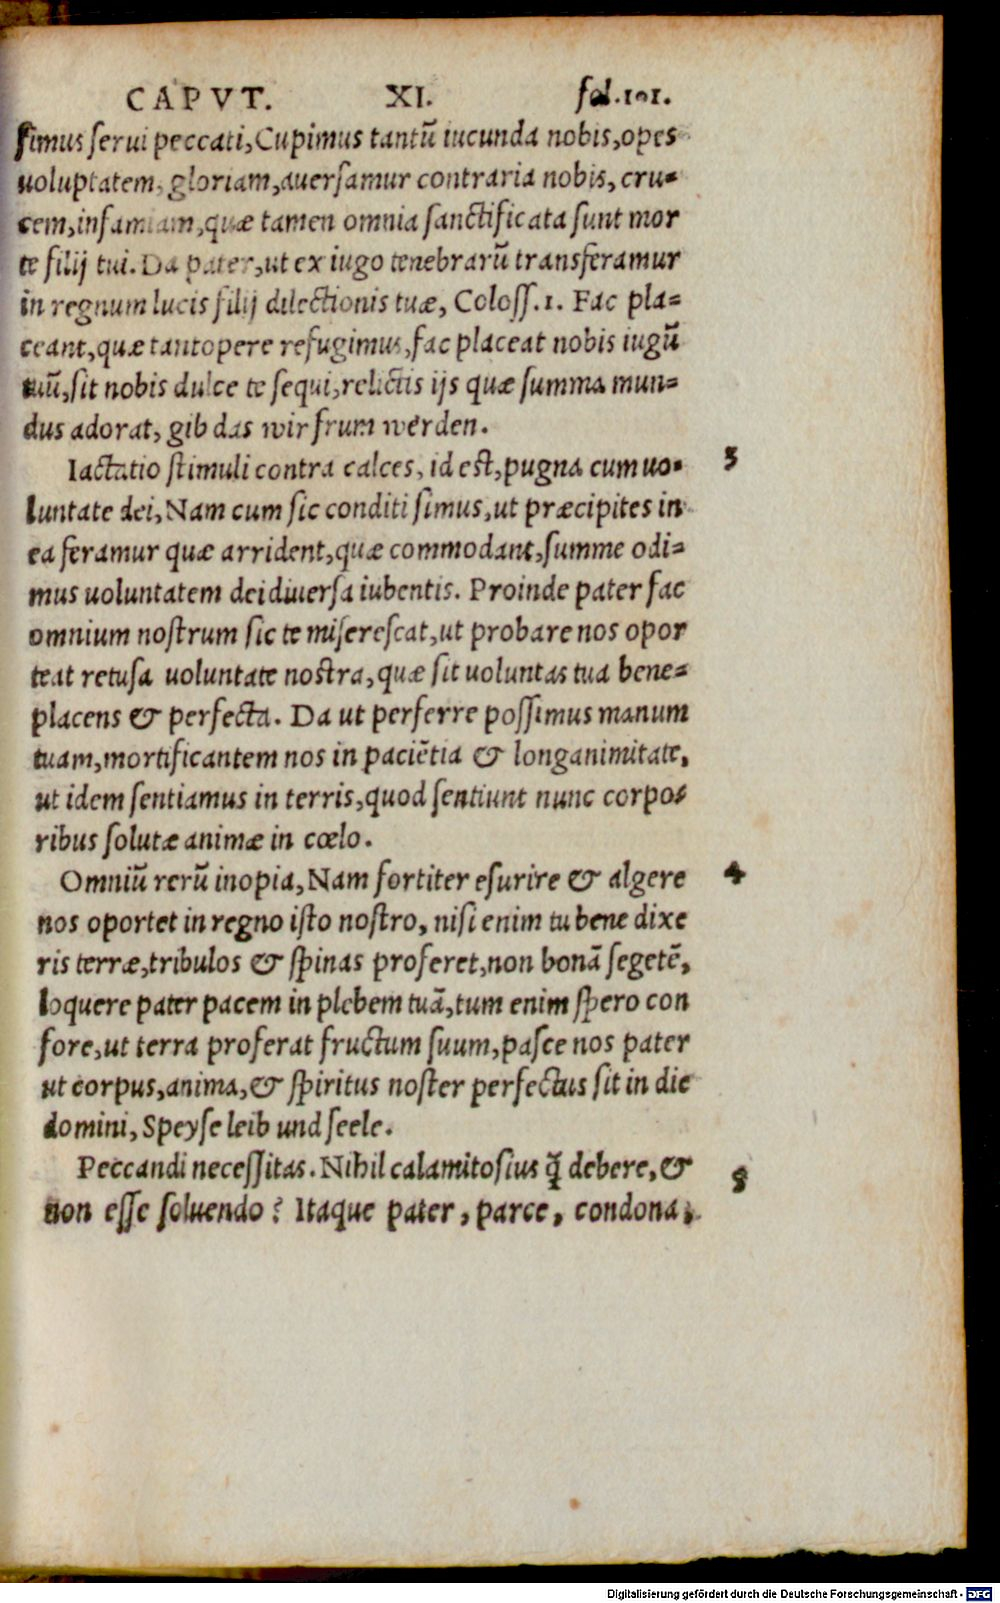 CAPVT. XI. fol.101.
simus serui peccati, Cupimus tantū iucunda nobis, opes
uoluptatem, gloriam, auersamur contraria nobis, cru=
cem, infamiam, quæ tamen omnia sanctificata sunt mor
te filij tui. Da pater, ut ex iugo tenebrarū transferamur
in regnum lucis filij dilectionis tuæ, Coloss.1. Fac pla=
ceant, quæ tantopere refugimus, fac placeat nobis iugū
tuū, sit nobis dulce te sequi, relictis ijs quæ summa mun=
dus adorat, gib das wir frum werden.
Iactatio stimuli contra calces, id est, pugna cum uo= 3
luntate dei, Nam cum sic conditi simus, ut præcipites in
ea feramur quæ arrident, quæ commodant, summe odi=
mus uoluntatem dei diuersa iubentis. Proinde pater fac
omnium nostrum sic te miserescat, ut probare nos opor
teat retusa uoluntate nostra, quæ sit uoluntas tua bene=
placens & perfecta. Da ut perferre possimus manum
tuam, mortificantem nos in paciētia & longanimitate,
ut idem sentiamus in terris, quod sentiunt nunc corpo=
ribus solutæ animæ in cœlo.
Omniū rerū inopia, Nam fortiter esurire & algere 4
nos oportet in regno isto nostro, nisi enim tu bene dixe
ris terræ, tribulos & spinas proferet, non bonā segetē,
loquere pater pacem in plebem tuā, tum enim spero con
fore, ut terra proferat fructum suum, pasce nos pater
ut corpus, anima, & spiritus noster perfectus sit in die
domini, Speyse leib und seele.
Peccandi necessitas. Nihil calamitosius q̃ debere, & 5
non esse soluendo? Itaque pater, parce, condona,
Digitalisierung gefördert durch die Deutsche Forschungsgemeinschaft - DFG